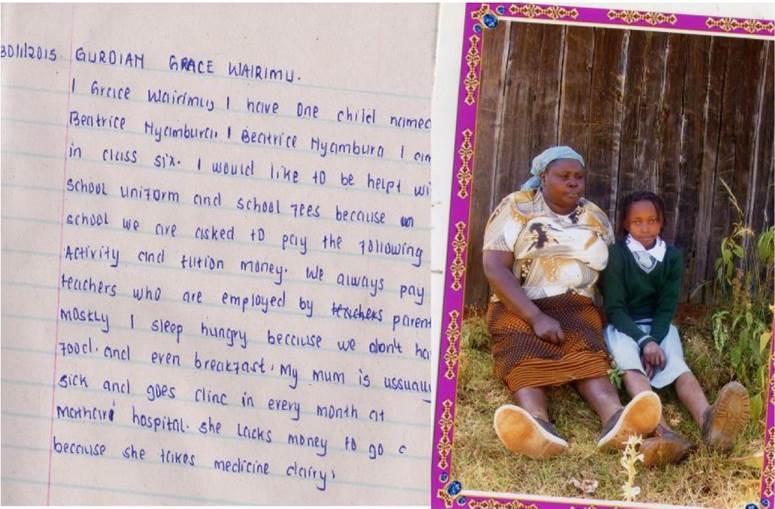 30/1/2015 GURDIAN GRACE WAIRIMU.
I Grace Wairimu, I have one child named
Beatrice Nyambura. I Beatrice Nyambura I am
in class six. I would like to be helpt wi
school uniform and school fees because
school we are asked to pay the following
Activity and tution money. We always pay
teachers who are employed by teachers parent
mostly I sleep hungry because we don't ha
food. and even breakfast. My mum is ussuall
sick and goes clinc in every month at
mathari hospital. she lacks money to go
because she takes medicine dairy.